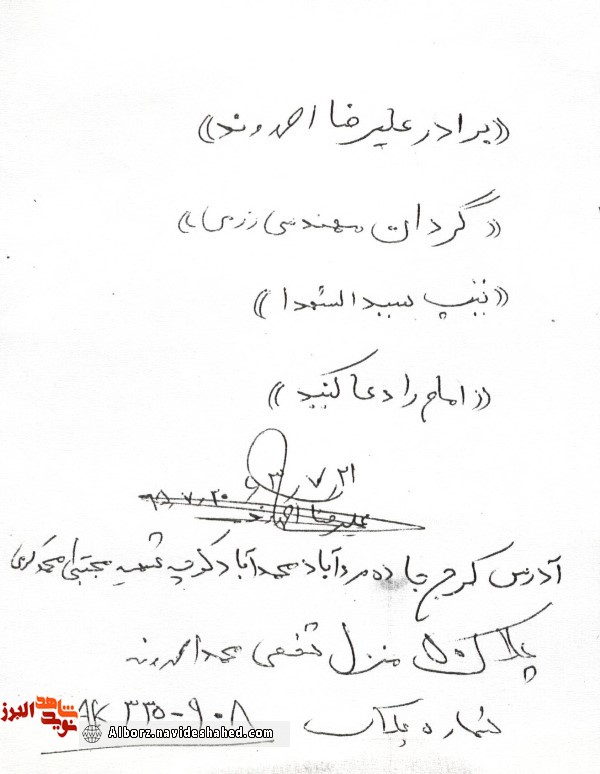 «برادر علیرضا احمدوند»
«گردان مهندسی رزمی»
«تیپ سیدالشهدا»
«امام را دعا کنید»
۶۳/۷/۲۱
۶۵/۷/۲۰
علیرضا احمدوند
آدرس کرج جاده مردآباد محمدآباد کوچه شهید مجتبی محمد کرمی
پلاک ۵۰ منزل شخصی محمد احمدوند
شماره پلاک AK ۳۳۵-۹۰۸
نوید شاهد البرز
Alborz.navideshahed.com